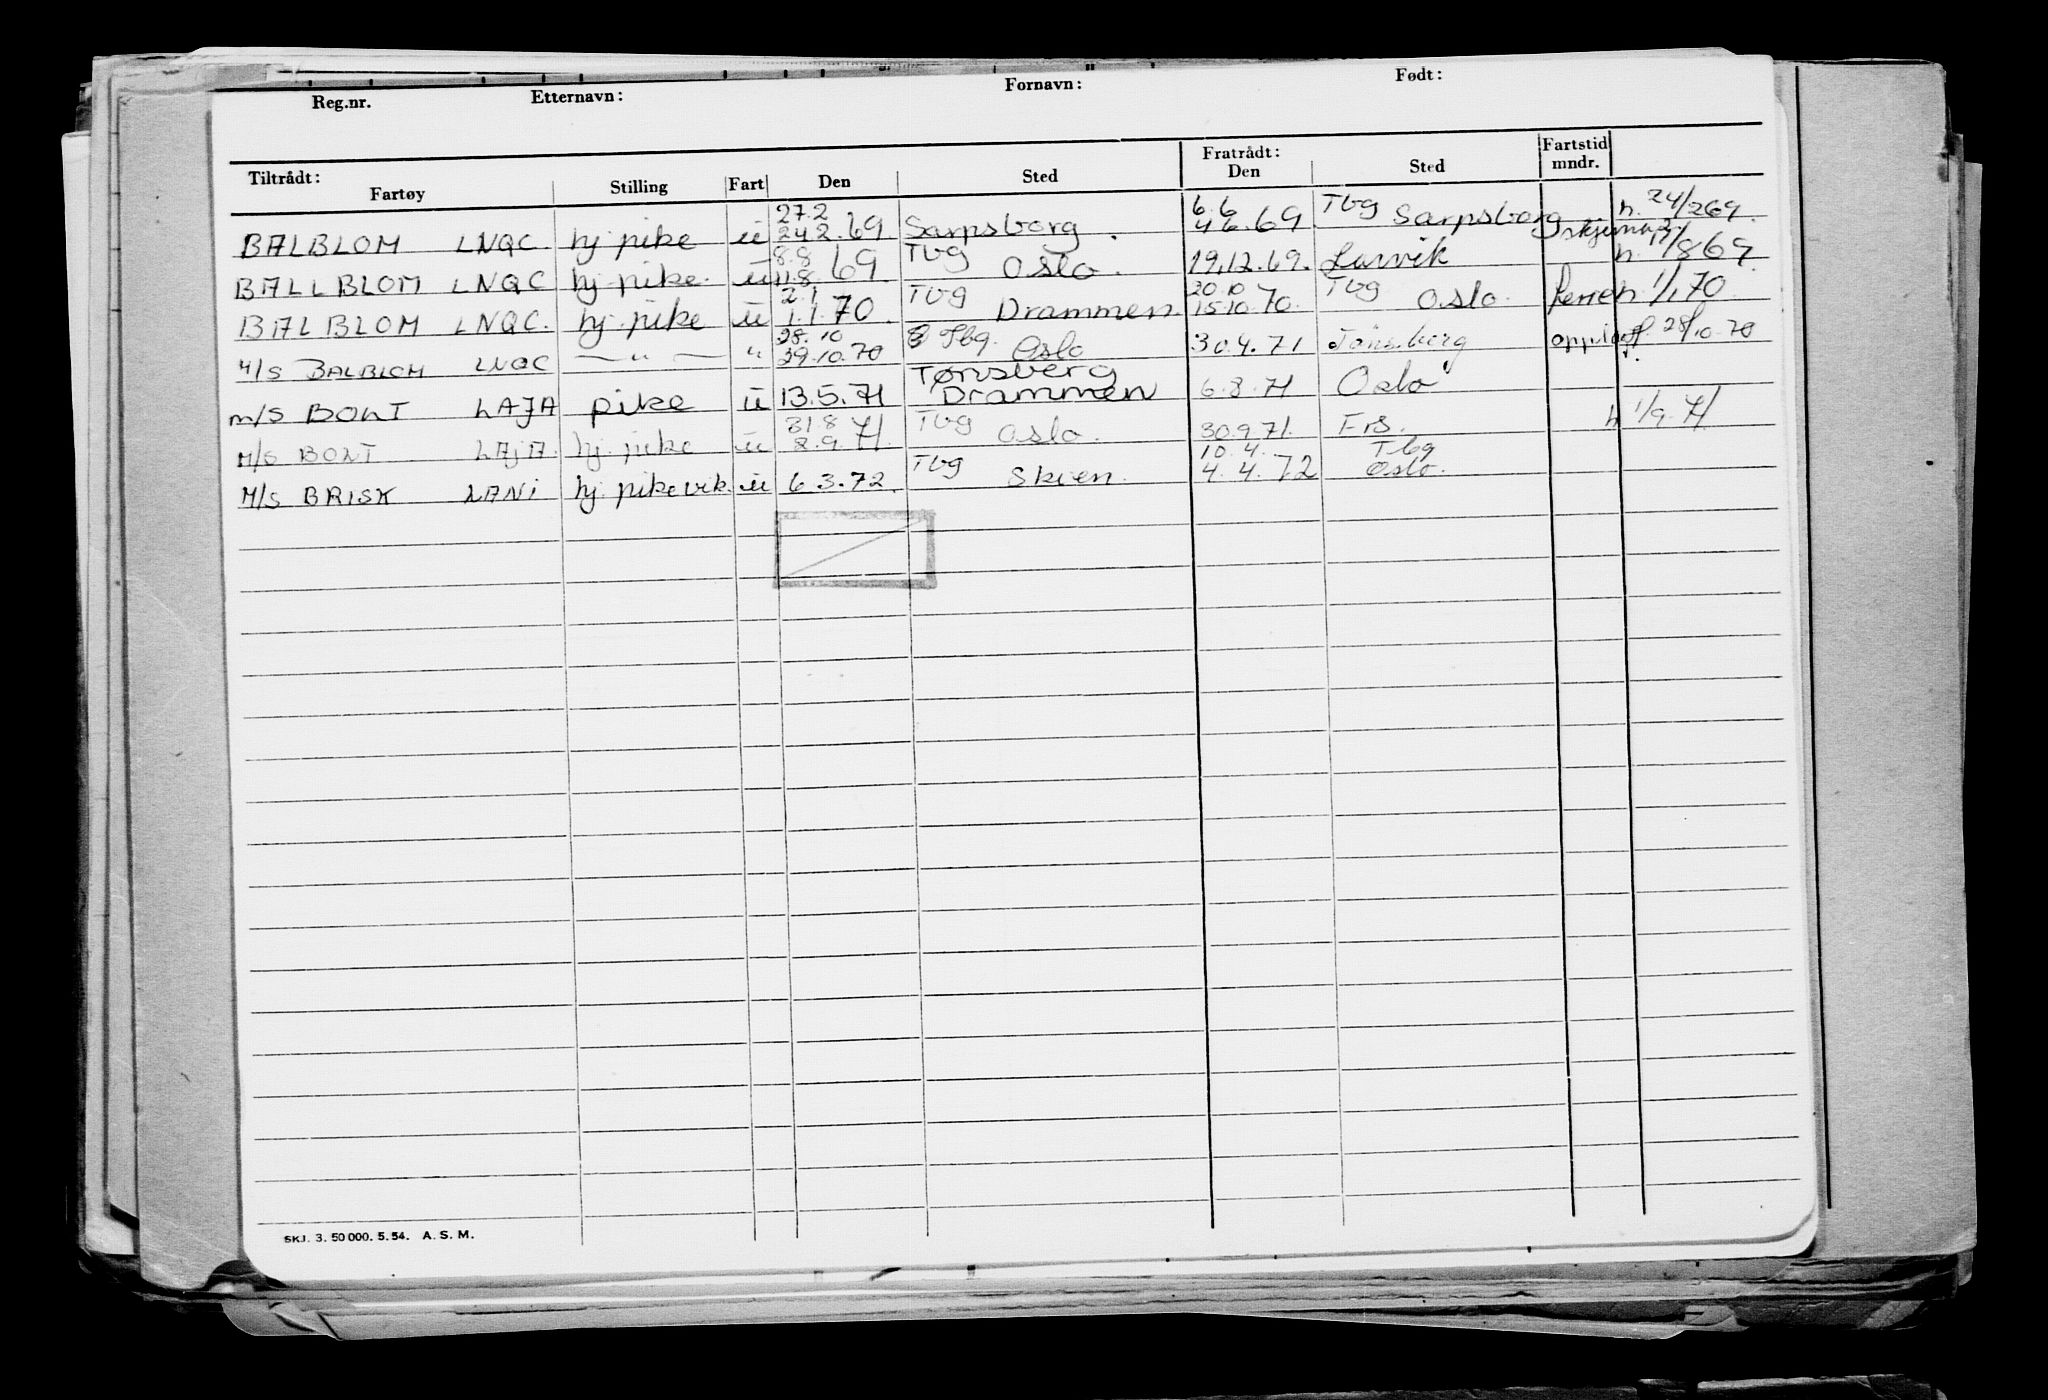 Reg.nr. Etternavn: Fornavn: Født:
Tiltrådt: Fratrådt: Fartstid
Fartøy Stilling Fart Den Sted Den Sted mndr.
27.2 6.6 Tbg
BALBLOM LNQC. hj pike iu 24 2.69 Sarpsborg. 4 6.69. Sarpsborg h. 24/2 69.
8.8 Tbg skjema 2
BALLBLOM LNQC hj. pike. iu 11.8.69 Oslo. 19.12.69. Larvik h. 11/8 69.
2.1 Tbg 20.10 Tbg
BALBLOM LNQC. hj. pike iu 1.1.70. Drammen 15.10.70. Oslo. ferie h. 1/1 70
28.10 Tbg.
M/S BALBLOM LNQC — " — " 29.10.70 Oslo 30.4.71 Tönsberg 28/10.70
Tønsberg
m/s BONT LAJA pike iu 13.5.71 Drammen 6.8.71 Oslo
31.8 Tbg
M/S BONT LAJA. hj. pike iu 2.9.71. Oslo. 30.9.71. Frs. h 1/9.71
Tbg 10.4. Tbg
M/S BRISK LANI hj. pikevik. iu 6 3.72. Skien. 4.4.72 Oslo.
SKJ. 3. 50 000. 5. 54. A. S. M.